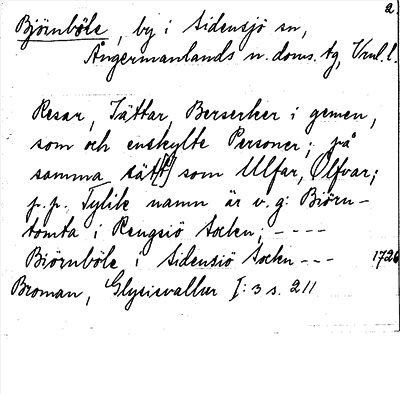 2.
Björnböle, by i Sidensjö sn,
Ångermanlands n. doms. tg, Vnl. l.
Resar, Jättar, Berserker i gemen,
som och enskylte Personer; på
samma sät[t] som Ulfar, Olfvar;
p.p. Tylik namn är v.g: Biörn-
tomta i Rengsiö Socken; ----
Biörnböle i Sidensiö Socken --- 1726
Broman, Glysisvallur I: 3 s. 211